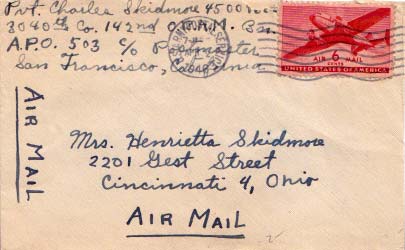 Pvt. Charles Skidmore 4500
3040th Co. 142nd Bn.
A.P.O. 503 c/o Postmaster
San Francisco, California
AIR MAIL
6
CENTS
UNITED STATES OF AMERICA
AIR MAIL
Mrs. Henrietta Skidmore
2201 Gest Street
Cincinnati 4, Ohio
AIR MAIL